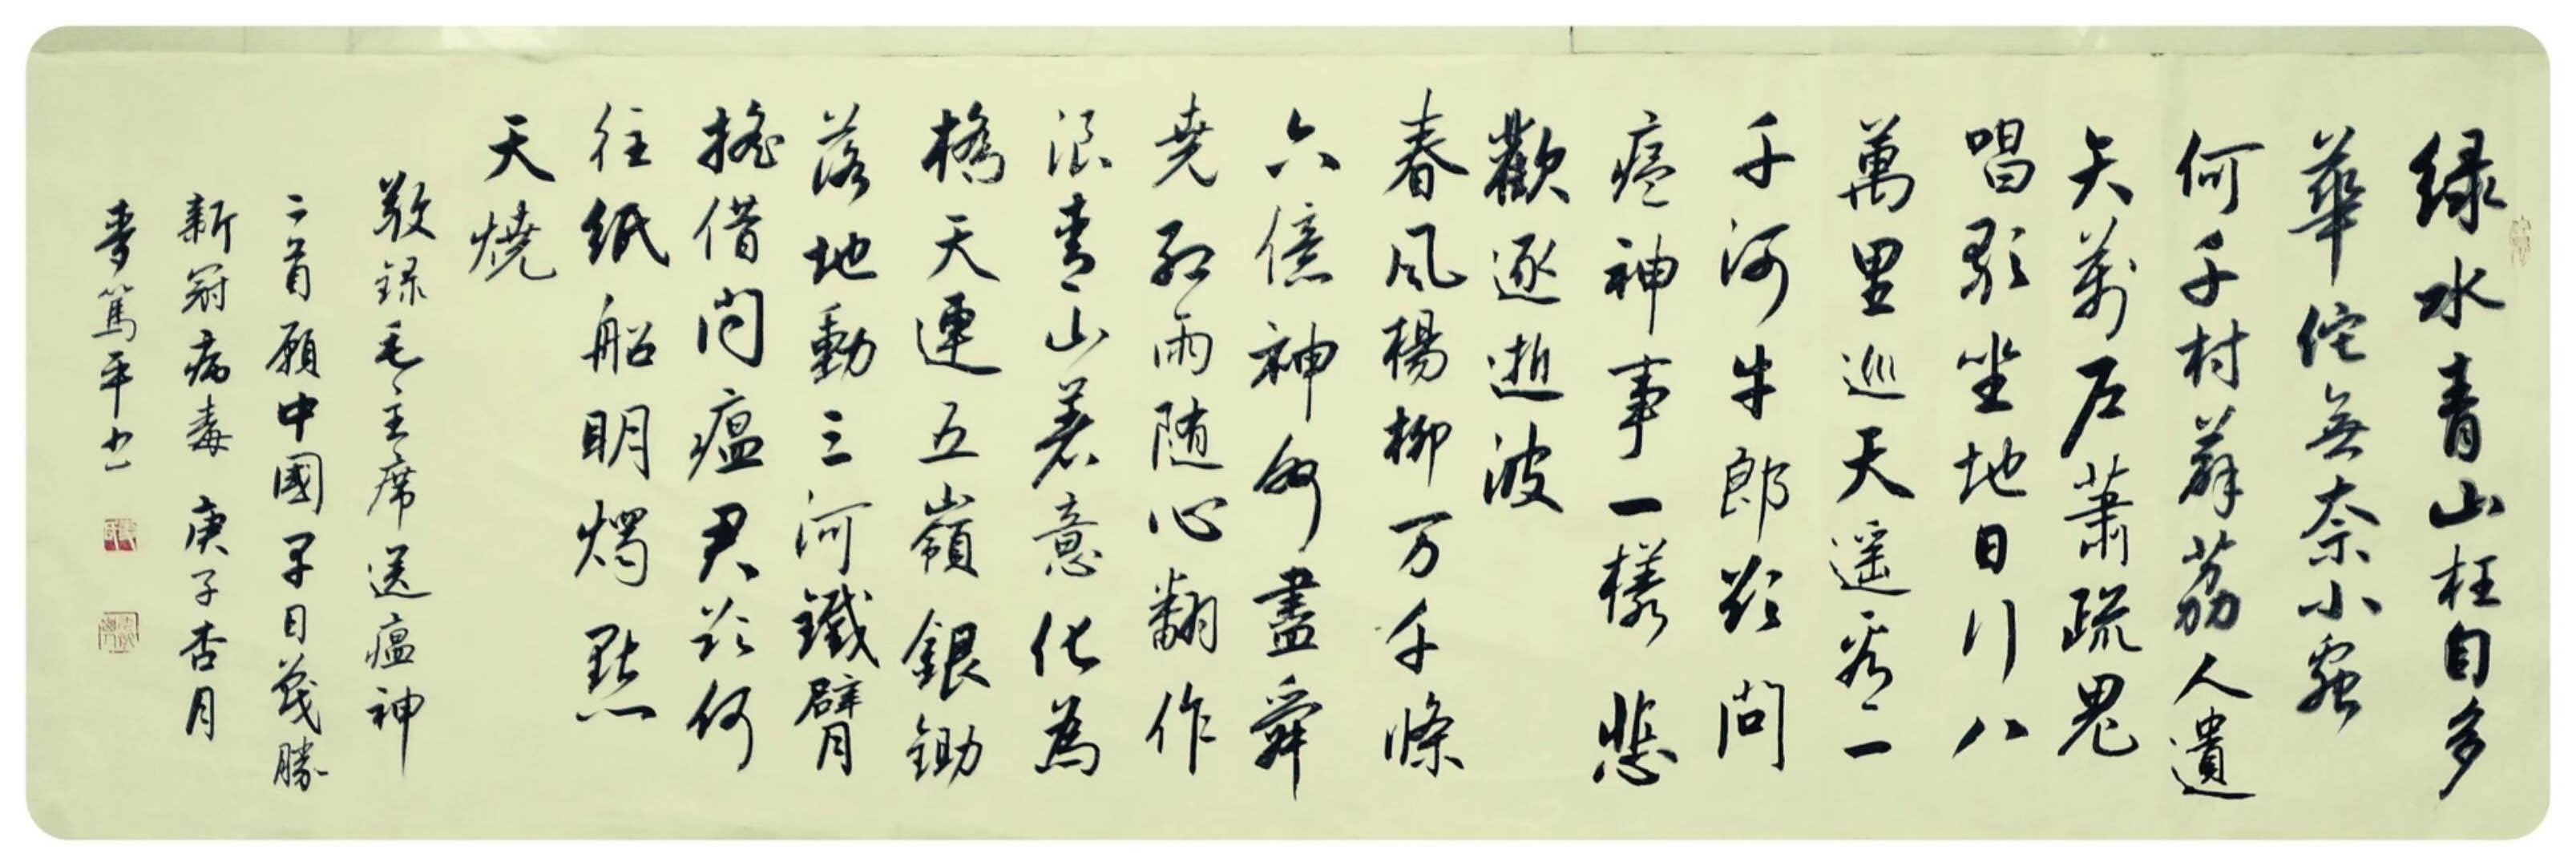 绿水青山枉自多
華佗無奈小蟲
何千村薜荔人遺
矢萬戶蕭疏鬼
唱歌坐地日行八
萬里巡天遥看一
千河牛郎欲問
瘟神事一樣悲
歡逐逝波
春風楊柳万千條
六億神州盡舜
堯紅雨随心翻作
浪青山着意化為
橋天連五嶺銀鋤
落地動三河鐵臂
搖借問瘟君欲何
往紙船明燭照
天燒
敬録毛主席送瘟神
二首願中國早日戰勝
新冠病毒 庚子杏月
篤平书